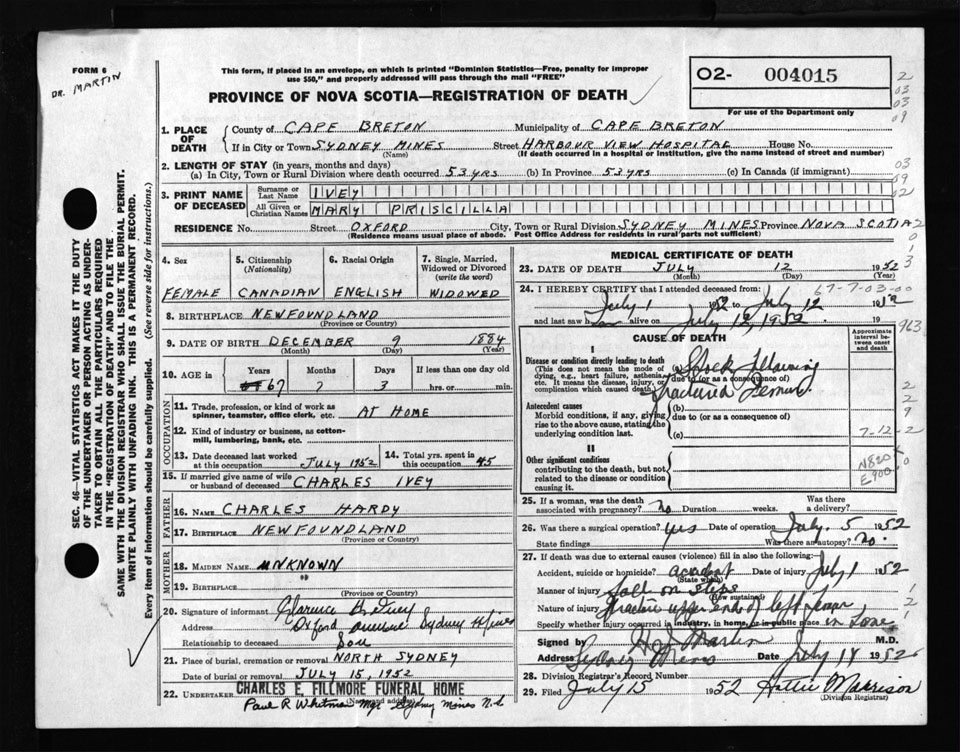 FORM 6
DR. MARTIN
This form, if placed in an envelope, on which is printed "Dominion Statistics—Free, penalty for improper
use $50," and properly addressed will pass through the mail "FREE"
PROVINCE OF NOVA SCOTIA—REGISTRATION OF DEATH
02- 004015
For use of the Department only
2
03
03
09
1. PLACE OF DEATH
County of CAPE BRETON Municipality of CAPE BRETON
If in City or Town SYDNEY MINES Street HARBOUR VIEW HOSPITAL House No.
(Name) (If death occurred in a hospital or institution, give the name instead of street and number)
2. LENGTH OF STAY (in years, months and days)
(a) In City, Town or Rural Division where death occurred 53 YRS (b) In Province 53 YRS (c) In Canada (if immigrant)
03
09
02
3. PRINT NAME OF DECEASED
Surname or Last Name IVEY
All Given or Christian Names MARY PRISCILLA
RESIDENCE No. Street OXFORD City, Town or Rural Division SYDNEY MINES Province NOVA SCOTIA
(Residence means usual place of abode. Post Office Address for residents in rural parts not sufficient)
2
0
3
4. Sex
FEMALE
5. Citizenship
(Nationality)
CANADIAN
6. Racial Origin
ENGLISH
7. Single, Married,
Widowed or Divorced
(write the word)
WIDOWED
8. BIRTHPLACE NEWFOUNDLAND
(Province or Country)
9. DATE OF BIRTH DECEMBER 9 1884
(Month) (Day) (Year)
10. AGE in
Years Months Days If less than one day old
67 7 3 hrs. or min.
OCCUPATION
11. Trade, profession, or kind of work as
spinner, teamster, office clerk, etc. AT HOME
12. Kind of industry or business, as cotton-
mill, lumbering, bank, etc.
13. Date deceased last worked
at this occupation JULY 1952
14. Total yrs. spent in
this occupation 45
15. If married give name of wife
or husband of deceased CHARLES IVEY
FATHER
16. NAME CHARLES HARDY
17. BIRTHPLACE NEWFOUNDLAND
(Province or Country)
MOTHER
18. MAIDEN NAME UNKNOWN
19. BIRTHPLACE "
(Province or Country)
20. Signature of informant Clarence Ivey
Address Oxford Avenue Sydney Mines
Relationship to deceased Son
21. Place of burial, cremation or removal NORTH SYDNEY
Date of burial or removal JULY 15, 1952
22. UNDERTAKER CHARLES E. FILLMORE FUNERAL HOME
(Name and address)
Paul R Whitman Mgr Sydney Mines N.S.
MEDICAL CERTIFICATE OF DEATH
23. DATE OF DEATH JULY 12 1952
(Month) (Day)
67-7-03-00
24. I HEREBY CERTIFY that I attended deceased from:
July 1 1952 to July 12 19
and last saw alive on July 12, 1952 19
CAUSE OF DEATH
Approximate interval between onset and death
963
I
Disease or condition directly leading to death
(This does not mean the mode of
dying, e.g., heart failure, asthenia,
etc. It means the disease, injury, or
complication which caused death.)
(a) Shock following
due to (or as a consequence of)
fractured Femur
Antecedent causes
Morbid conditions, if any, giving
rise to the above cause, stating the
underlying condition last.
(b)
due to (or as a consequence of)
(c)
7-12-2
II
Other significant conditions
contributing to the death, but not
related to the disease or condition
causing it.
N820
E900
25. If a woman, was the death
associated with pregnancy? no Duration weeks. Was there
a delivery?
26. Was there surgical operation? yes Date of operation July 5 1952
State findings Was there an autopsy? no.
27. If death was due to external causes (violence) fill in also the following:
Accident, suicide or homicide? accident Date of injury July 1 1952
(State which)
Manner of injury fall on steps
(How sustained)
Nature of injury fracture upper end of left femur
Specify whether injury occurred in industry, in home, or in public place in home
1
2
Signed by Martin M.D.
Address Sydney Mines Date July 14 1952
28. Division Registrar's Record Number
29. Filed July 15 1952 Hattie Morrison
(Division Registrar)
SEC. 46—VITAL STATISTICS ACT MAKES IT THE DUTY
OF THE UNDERTAKER OR PERSON ACTING AS UNDER-
TAKER TO OBTAIN ALL THE PARTICULARS REQUIRED
IN THE "REGISTRATION OF DEATH" AND TO FILE THE
SAME WITH THE DIVISION REGISTRAR WHO SHALL ISSUE THE BURIAL PERMIT.
WRITE PLAINLY WITH UNFADING INK. THIS IS A PERMANENT RECORD.
Every item of information should be carefully supplied. (See reverse side for instructions.)